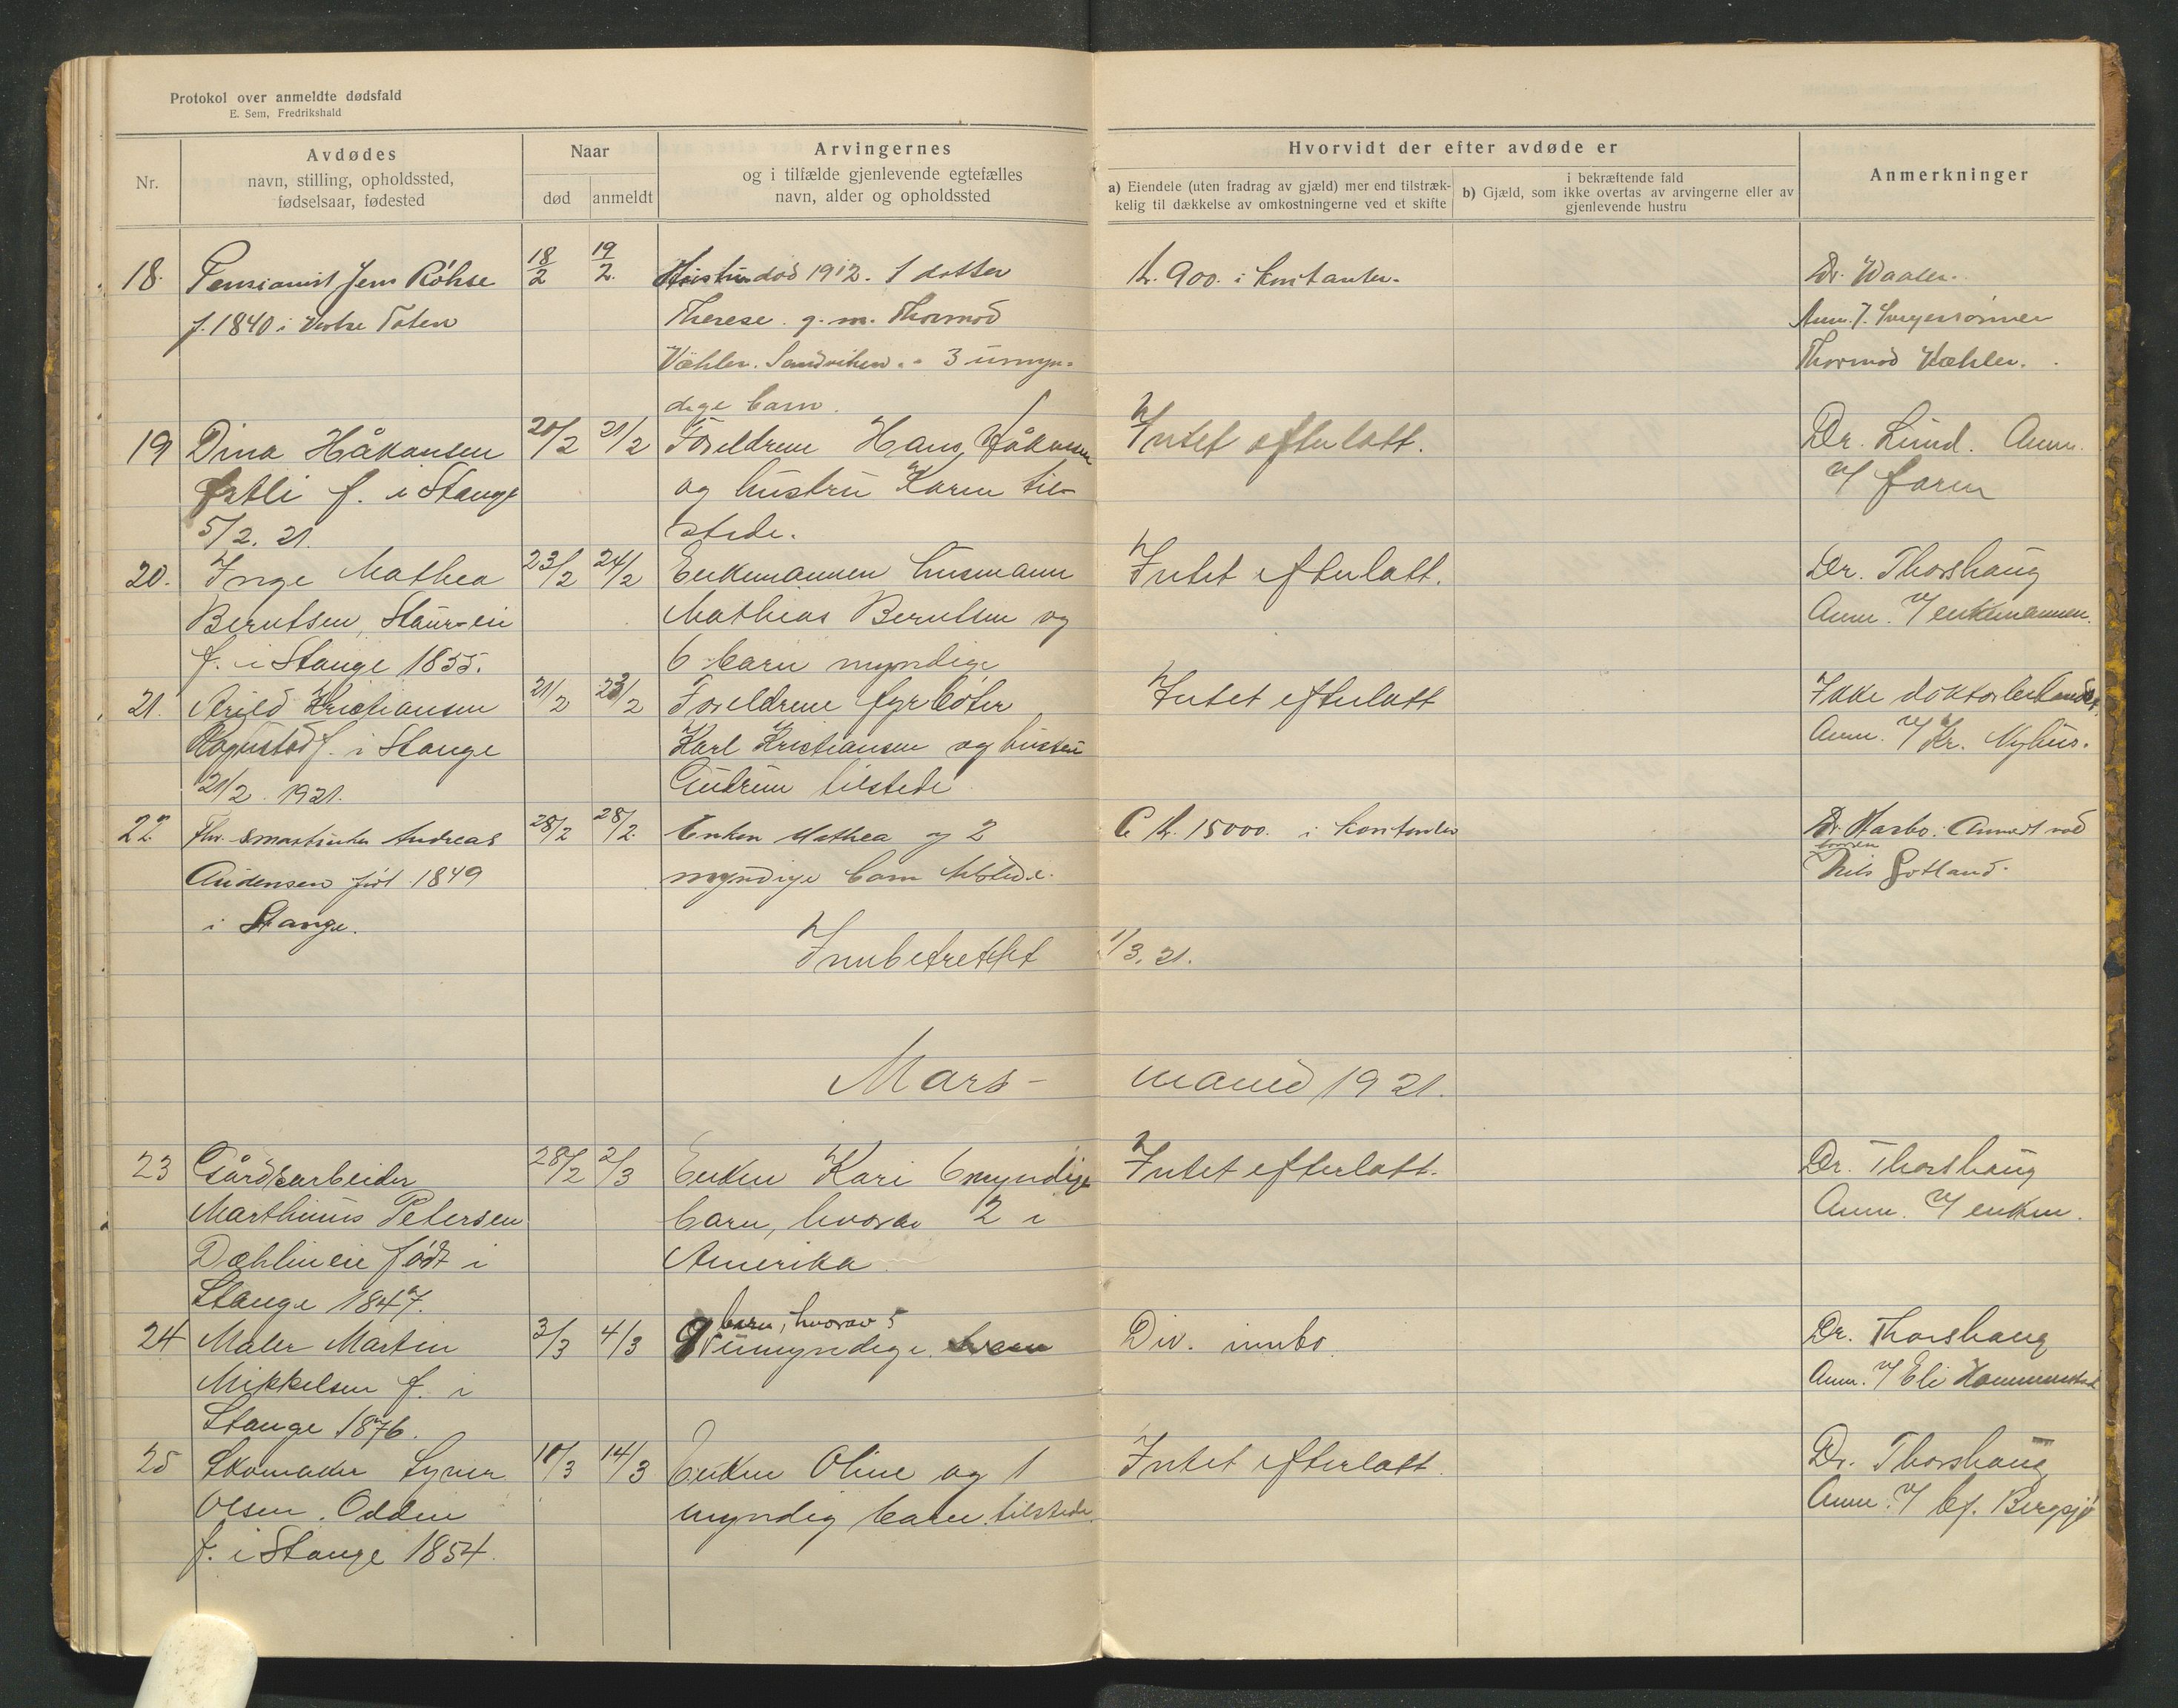 Protokol over anmeldte dødsfald
E. Sem, Fredrikshald
Nr.
Avdødes
navn, stilling, opholdssted,
fødselsaar, fødested
Naar
død
anmeldt
Arvingernes
og i tilfælde gjenlevende egtefælles
navn, alder og opholdssted
Hvorvidt der efter avdøde er
a) Eiendele (uten fradrag av gjæld) mer end tilstræk-
kelig til dækkelse av omkostningerne ved et skifte
i bekræftende fald
b) Gjæld, som ikke overtas av arvingerne eller av
gjenlevende hustru
Anmerkninger
18. Pensionist Jens Röhse 18/2 19/2. Hustru död 1912. 1 datter Kr. 900. i kontanter. Dr. Waaler.
f. 1840 i Vestre Toten Therese g. m. Thormod Anm. f.
Væhler. Sandviken. - 3 umyn- Thormod Væhler.
dige barn.
19 Dina Håkansen 20/2 21/2 Foreldrene Hans Håkansen Intet efterlatt. Dr. Lund. Anm.
f. i Stange og hustru Karen til- v/ faren
5/2. 21. stede.
20. Inge Mathea 23/2 24/2 Enkemannen husmann Intet efterlatt. Dr. Thorshaug
Berntsen, Staur-eie Mathias Berntsen og Anm. v/ enkemannen.
f. i Stange 1855. 6 barn myndige
21. Arild Kristiansen 21/2 23/2 Foreldrene fyrböter Intet efterlatt Ikke doktorbehandlet.
f. i Stange Karl Kristiansen og hustru Anm. v/ Kr. Nyhus.
21/2 1921. Gudrun tilstede
22. Andreas 28/2 28/2. Enken Mathea og 2 C. Kr. 15000. i kontanter Dr. Harbo. Anmeldt ved
Audensen født 1849 myndige barn tilstede. Nils Gotland.
i Stange.
Innberettet 1/3. 21.
Mars- maned 1921.
23 Gårdsarbeider 28/2 2/3 Enken Kari 6 myndige Intet efterlatt. Dr. Thorshaug
Marthinus Petersen barn, hvorav 2 i Anm. v/ enken.
Dæhlineie födt i Amerika
Stange 1847.
24 Maler Martin 3/3 4/3 9 barn, hvorav 5 Div. innbo. Dr. Thorshaug
Mikkelsen f. i umyndige. Anm. v/ Eli
Stange 1876.
25 Skomaker Syver 10/3 14/3 Enken Oline og 1 Intet efterlatt. Dr. Thorshaug
Olsen. Odden myndig barn tilstede. Anm. v/ bf. Bergsjø
f. i Stange 1854.